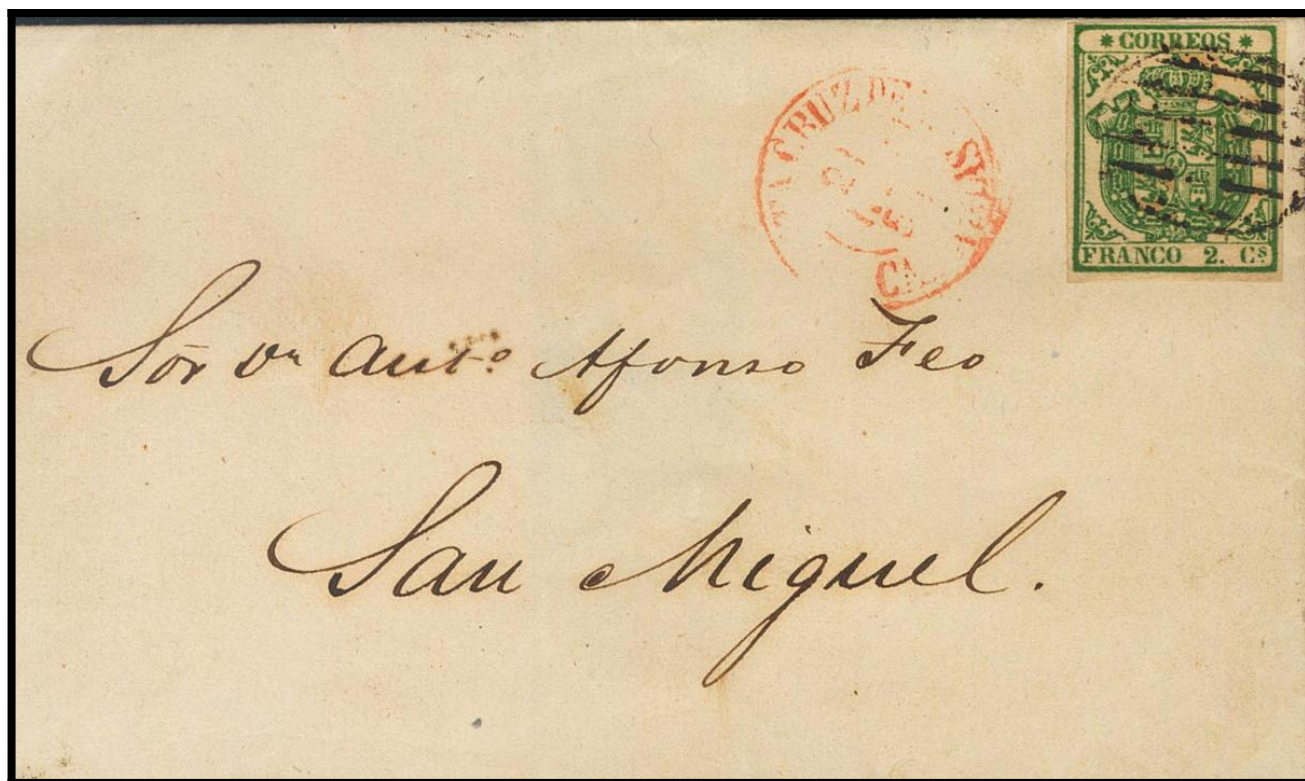 * CORREOS *
FRANCO 2. Cs
Sõr Dn Anto Afonso Feo
San Miguel.